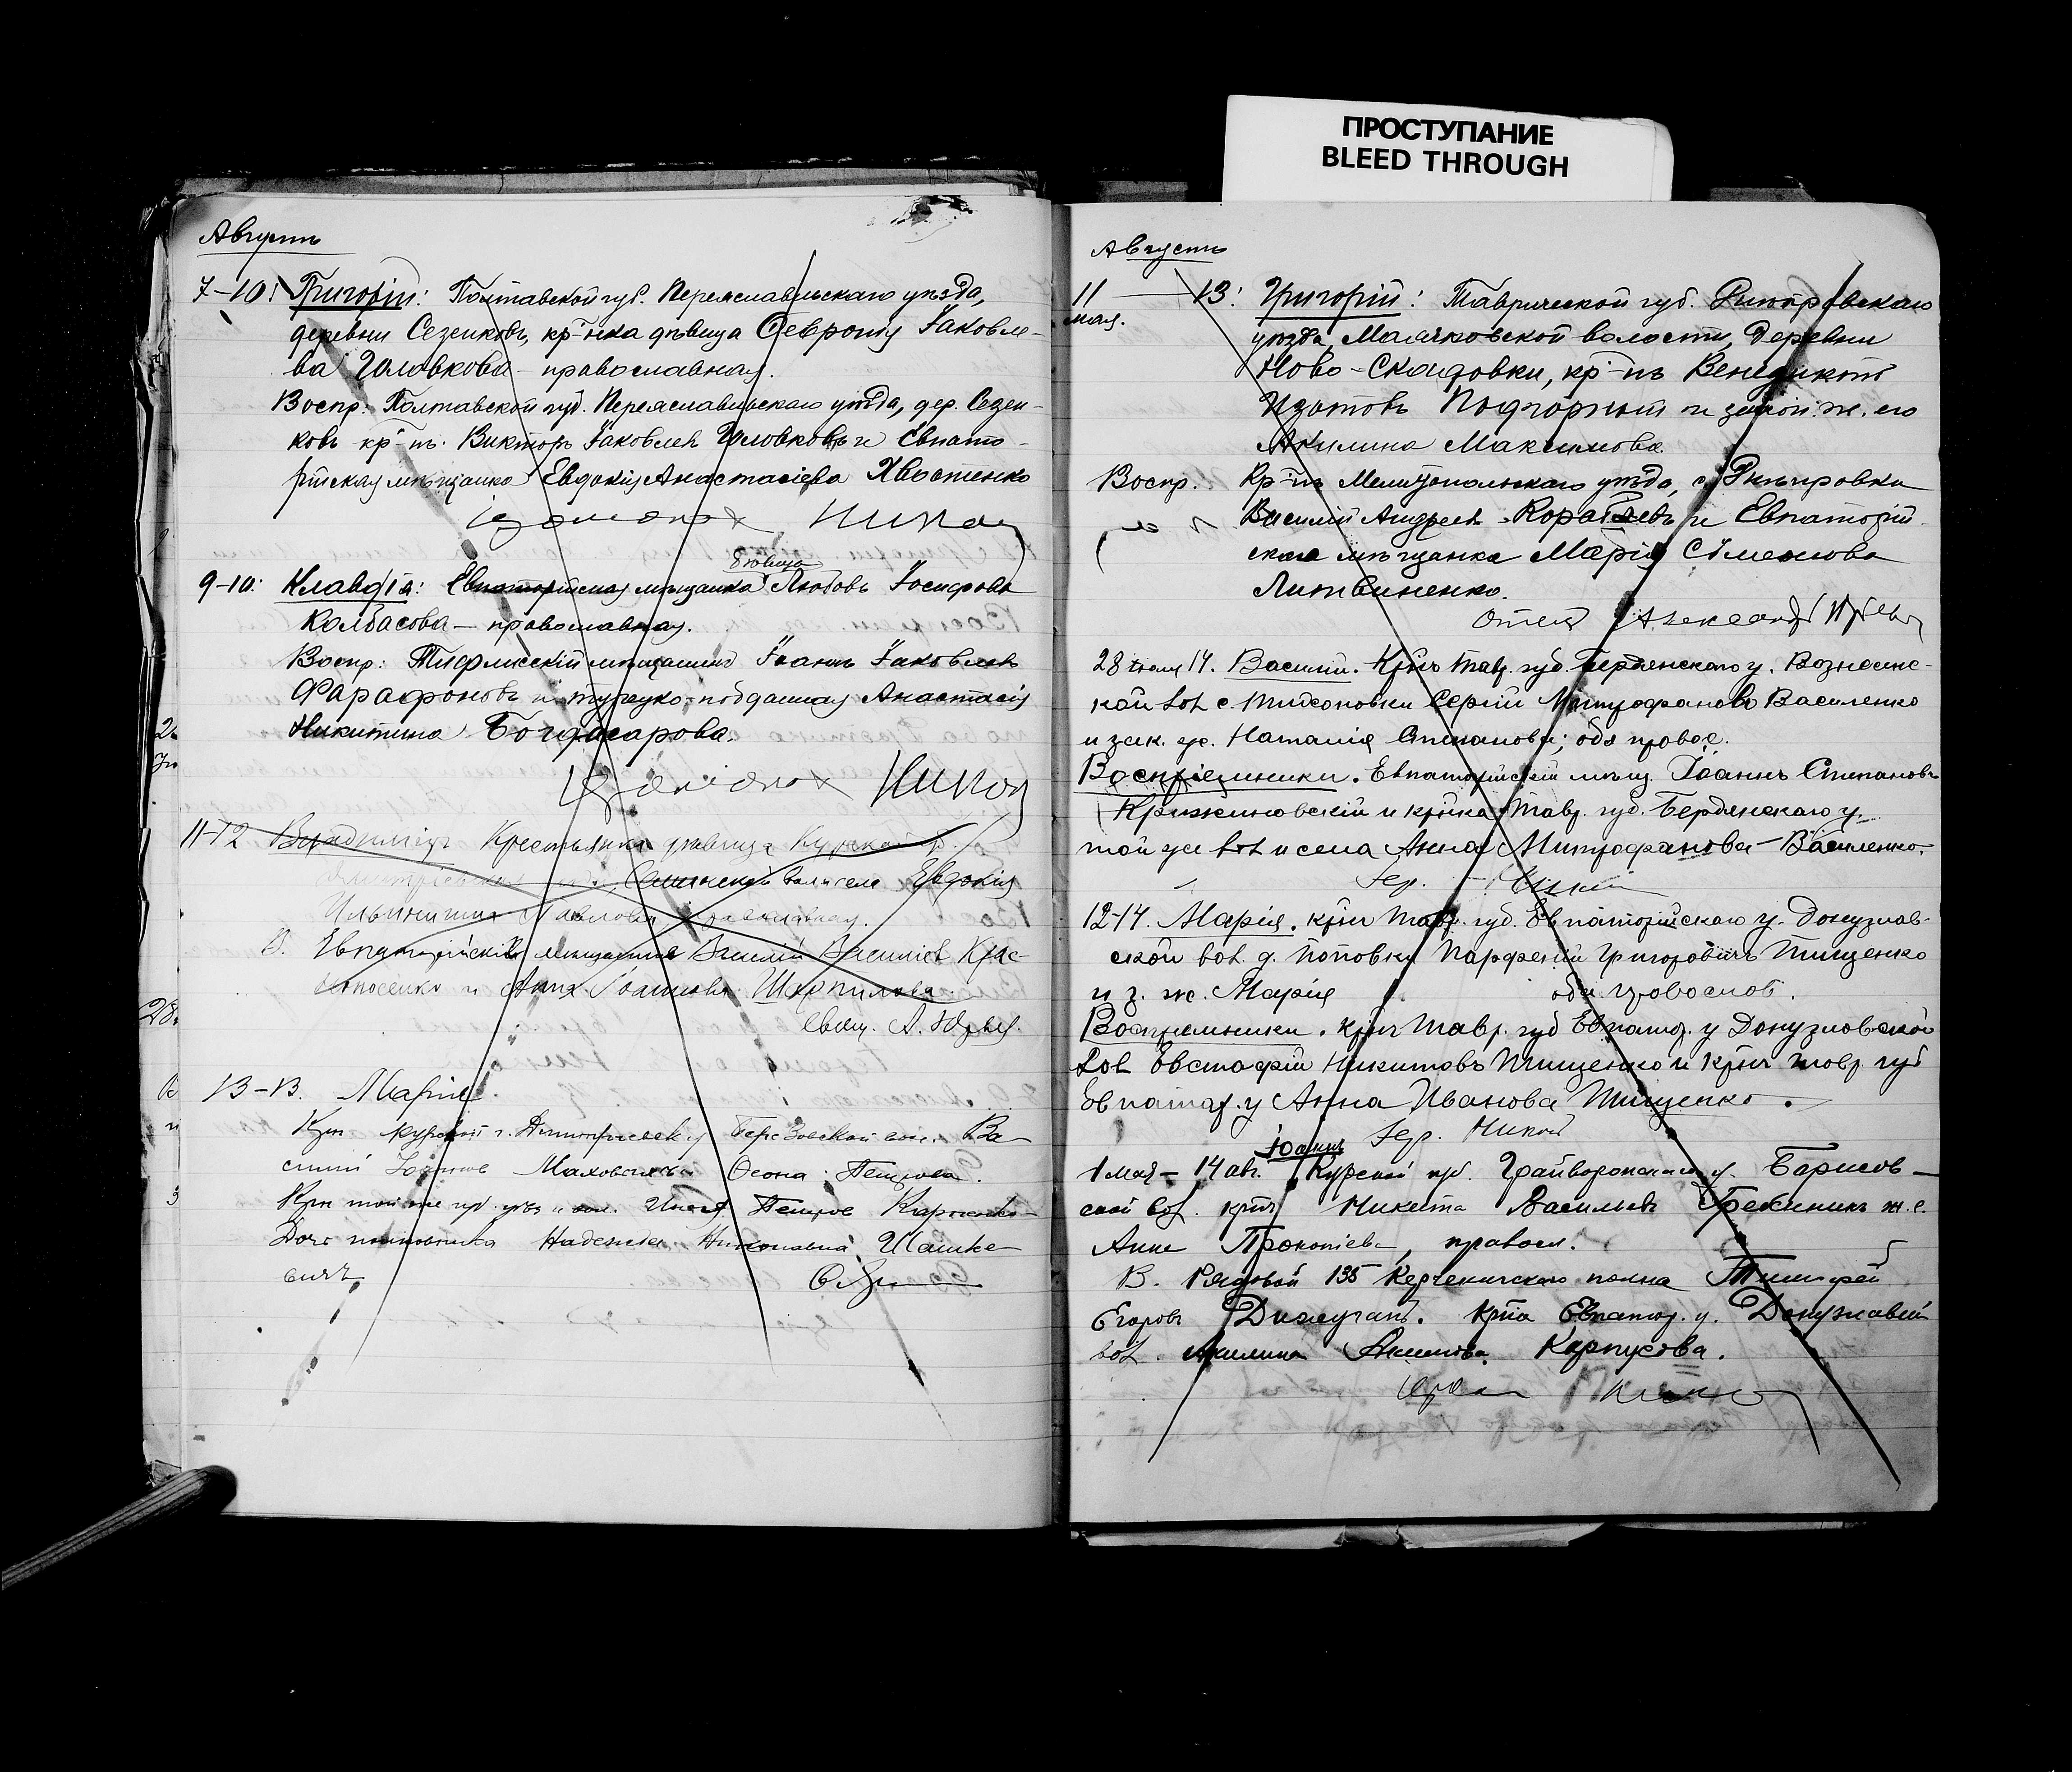 ПРОСТУПАНИЕ
BLEED THROUGH
Августъ
7-10: Григорій: Полтавской губ. Переяславльскаго уѣзда,
деревни Сезенковъ, кр-нка дѣвица Февронія Іаковле-
ва Головкова - православная.
Воспр: Полтавской губ. Переяславльскаго уѣзда, дер. Сезен-
ковъ кр-нъ Викторъ Іаковлевъ Головковъ и Евпато-
рійская мѣщанка Евдокія Анастасіева Хвостенко
9-10: Клавдія: Евпаторійская мѣщанка дѣвица Любовь Іосифова
Колбасова — православная.
Воспр: Тифлисскій мѣщанинъ Іоаннъ Іаковлевъ
Фарафоновъ и турецко-подданная Анастасія
Никитина Богдасарова.
11-12 Владиміръ Крестьянка дѣвица Курской г.
вол. села Евдокія
Ильинишна Павлова православная.
В. Евпаторійскій мѣщанинъ Василій Василіев. Крас-
и Анна Іоаннова Шарпилова.
Свящ. А.
13-13. Марія.
Крн Курской г. Дмитріевск. у Березовской вол. Ва-
силій Маховс Петрова.
Крн той же губ. уѣз. и вол. Петров
Дочь полковника Надежда Николаевна Шашке-
вичъ
Августъ
11 — 13: Григорій: Таврической губ. Днѣпровскаго
мая.
уѣзда, Маячковской волости, деревни
Ново-Скадовки, кр-нъ Венедиктъ
Изотовъ Подгорный и закон. ж. его
Акилина Максимова.
Воспр. Кр-нъ Мелитопольскаго уѣзда, с. Днѣпровки
Василій Андреевъ и Евпаторій-
ская мѣщанка Марія Симеонова
Литвиненко.
Отецъ Александръ
28 іюля 14. Василій. Крнъ Тавр. губ. Бердянскаго у. Вознесенс-
кой вол. с. Сергій Митрофановъ Василенко
и зак. ж. Наталія Степанова; оба правос.
Воспріемники. Евпаторійскій мѣщ. Іоаннъ Степановъ
Крижановскій и крнка Тавр. губ. Бердянскаго у.
той же вол и села Анна Митрофанова Василенко.
12-14. Марія. крнъ Тавр. губ. Евпаторійскаго у. Донузлав-
ской вол. д. Поповки Парфеній Григоровичъ Тищенко
и з. ж. Марія оба правослов.
Воспріемники. крнъ Тавр. губ Евпатор. у Донузлавской
вол Евстафій Никитовъ Тищенко и крнъ тавр. губ
Евпатор. у Анна Иванова Тищенко.
Іоаннъ
1 мая — 14 авг. Курской губ. Грайворонскаго у. Борисов-
ской вол. крнъ Никита Васильевъ ж. е.
Анна Прокопіева, правосл.
В. Рядовой 135 Керченискаго полка Тимофей
Егоровъ крка Евпатор. у. Донузлавской
вол. Акилина Карпусова.